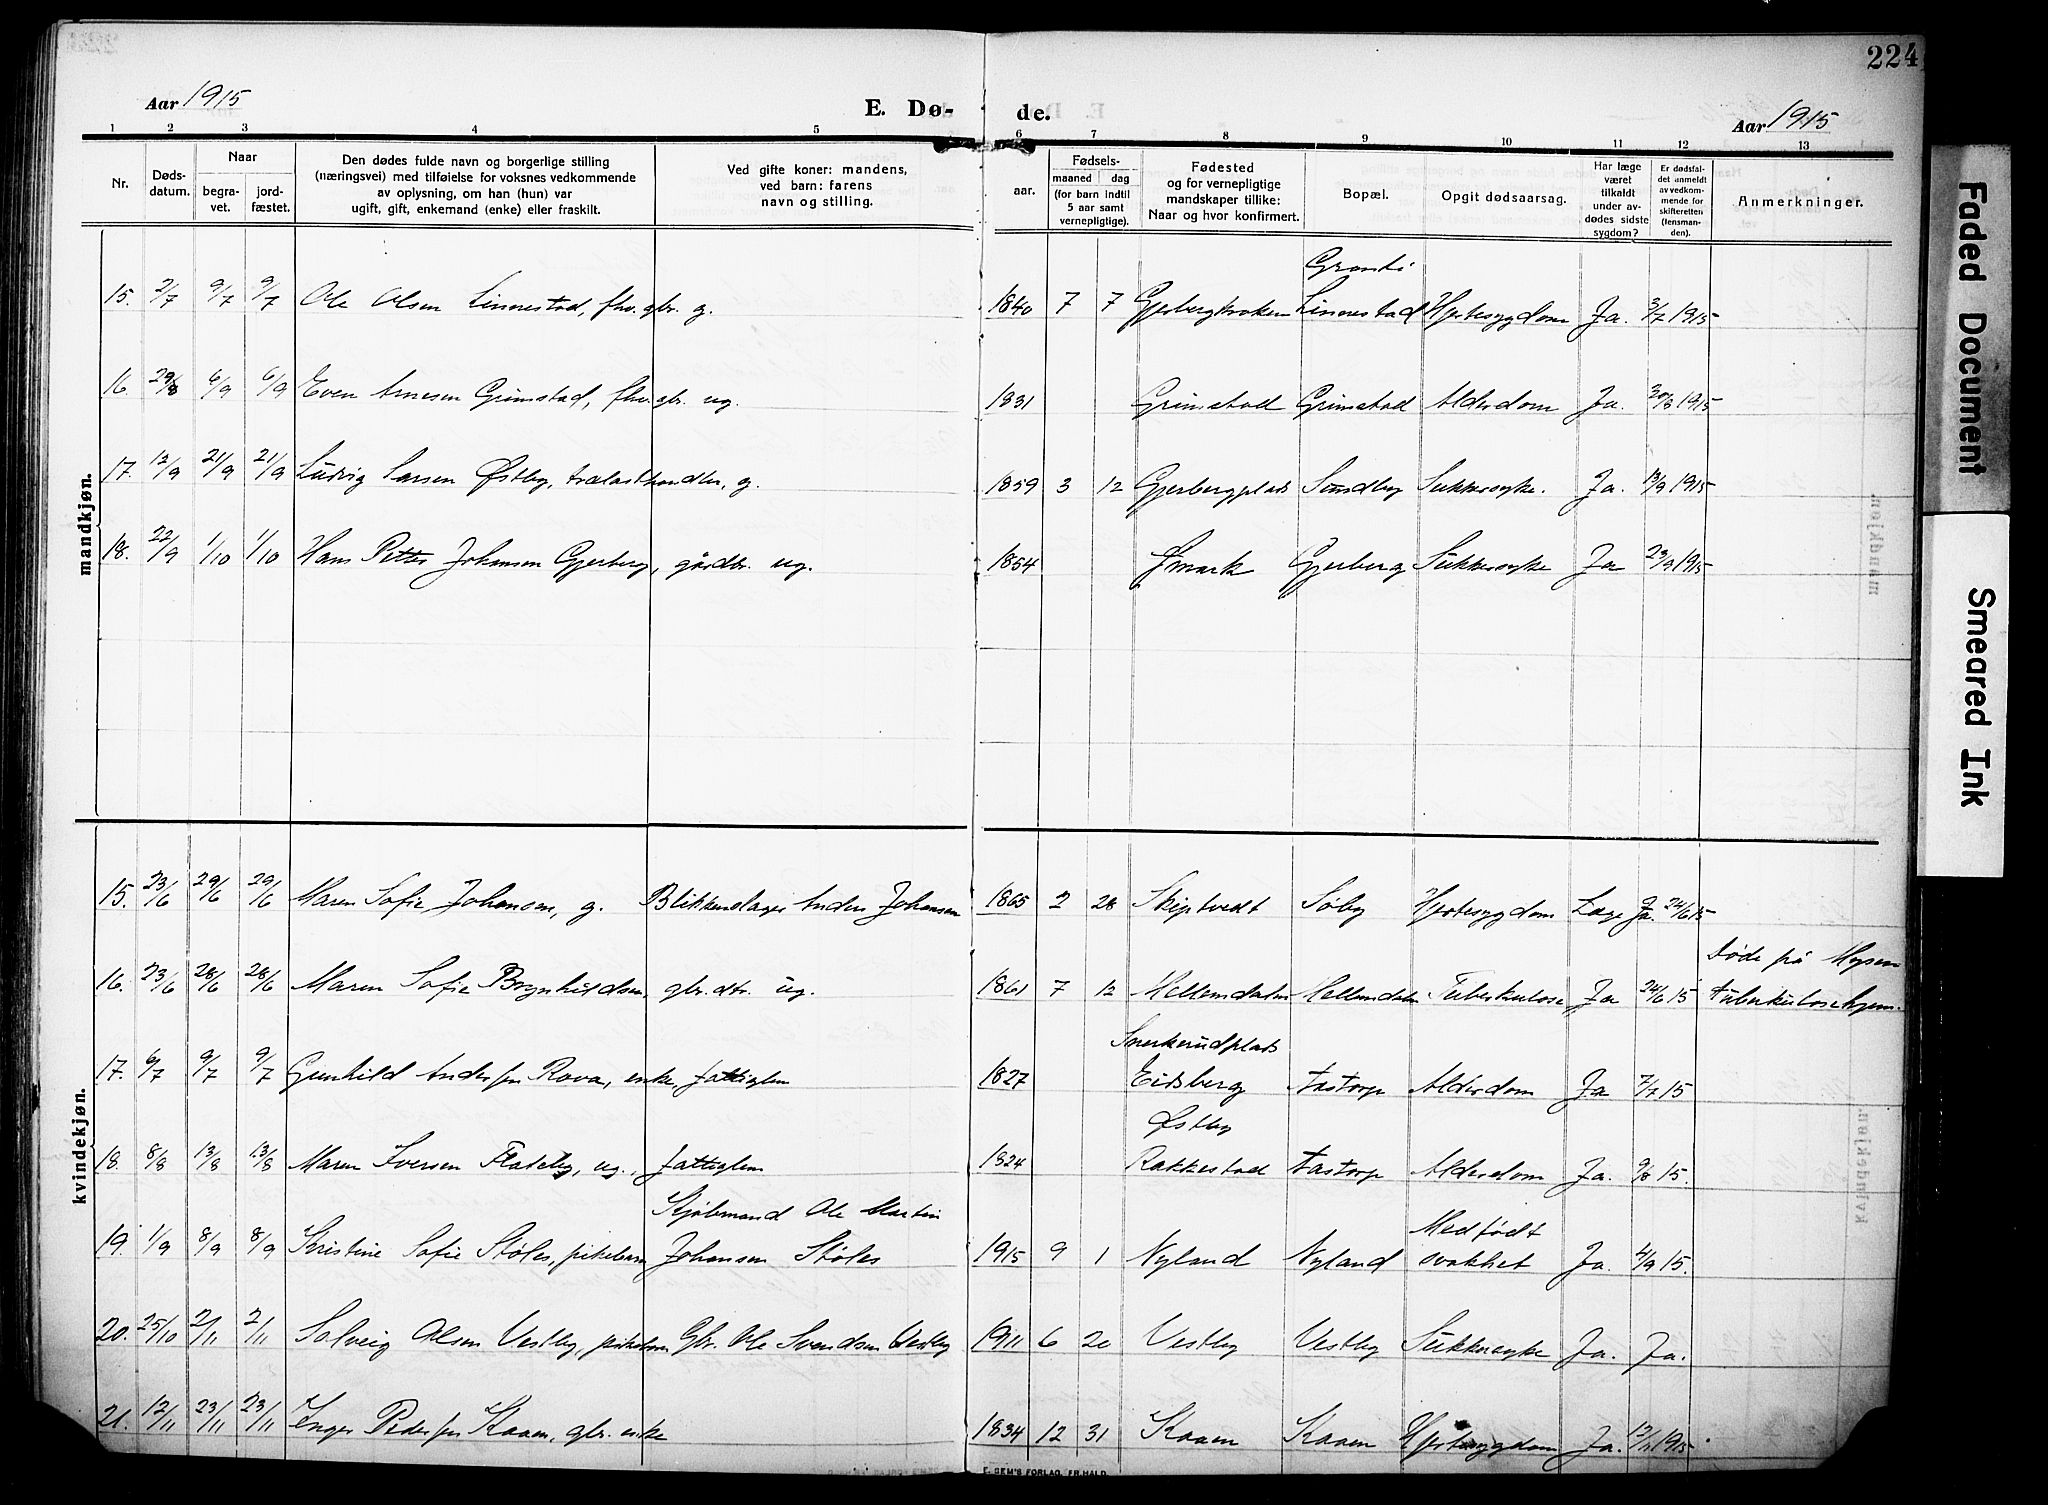 224
Aar 1915
E. Dø- de.
Aar 1915
1 2 3 4 5 6 7 8 9 10 11 12 13
Nr.
Dødsdatum.
Naar
begravet.
jordfæstet.
Den dødes fulde navn og borgerlige stilling
(næringsvei) med tilføielse for voksnes vedkommende
av oplysning, om han (hun) var
ugift, gift, enkemand (enke) eller fraskilt.
Ved gifte koner: mandens,
ved barn: farens
navn og stilling.
aar.
Fødsels-
maaned dag
(for barn indtil
5 aar samt
vernepligtige).
Fødested
og for vernepligtige
mandskaper tillike:
Naar og hvor konfirmert.
Bopæl.
Opgit dødsaarsag.
Har læge
været
tilkaldt
under av-
dødes sidste
sygdom?
Er dødsfal-
det anmeldt
av vedkom-
mende for
skifteretten
(lensman-
den).
Anmerkninger.
mandkjøn.
15. 2/7 9/7 9/7 Ole Olsen Linnestad, fhv. gbr. g. 1840 7 7 Gjerbergkroken Linnestad Hjertesygdom Ja. 3/7 1915
16. 29/8 6/9 6/9 Even Arnesen Grimstad, fhv. gbr. ug. 1831 Grimstad Grimstad Alderdom Ja. 30/8 1915
17. 12/9 21/9 21/9 Ludvig Larsen Østby, trælasthandler, g. 1859 3 12 Gjerbergplads Sundby Sukkersyke. Ja. 13/9 1915
18. 22/9 1/10 1/10 Hans Petter Johansen Gjerberg, gårdbr. ug. 1854 Ømark Gjerberg Sukkersyke Ja 23/9 1915
kvindekjøn.
15. 23/6 29/6 29/6 Maren Sofie Johansen, g. Blikkenslager Anders Johansen 1865 2 28 Skiptvedt Søby Hjertesygdom Læge Ja. 24/6 15
Døde på Mysen
16. 23/6 28/6 28/6 Maren Sofie Brynhildsen, gbr.dtr. ug. 1861 7 12 Mellemdalen Mellemdalen Tuberkulose Ja 24/6 15 tuberkulosehjem.
Snerkerudplads
17. 6/7 9/7 9/7 Gunhild Andersen Rova, enke, fattiglem 1827 Eidsberg Aastorp Alderdom Ja 7/7 15
Østby
18. 8/8 13/8 13/8 Maren Iversen Flateby, ug., fattiglem 1824 Rakkestad Aastorp Alderdom Ja. 9/8 15.
Kjøbmand Ole Martin
Medfødt
19. 1/9 8/9 8/9 Kristine Sofie Støles, pikebarn Johansen Støles 1915 9 1 Nyland Nyland svakhet Ja. 4/9 15.
20. 25/10 2/11 2/11 Solveig Olsen Vestby, pikebarn Gbr. Ole Svendsen Vestby 1911 6 20 Vestby Vestby Sukkersyke Ja. Ja.
21. 12/11 23/11 23/11 Inger Pedersen Kaaen, gbr. enke 1834 12 31 Kaaen Kaaen Hjertesygdom Ja. 12/11 1915
E. SEM'S FORLAG, FR.HALD
Faded Document
Smeared Ink